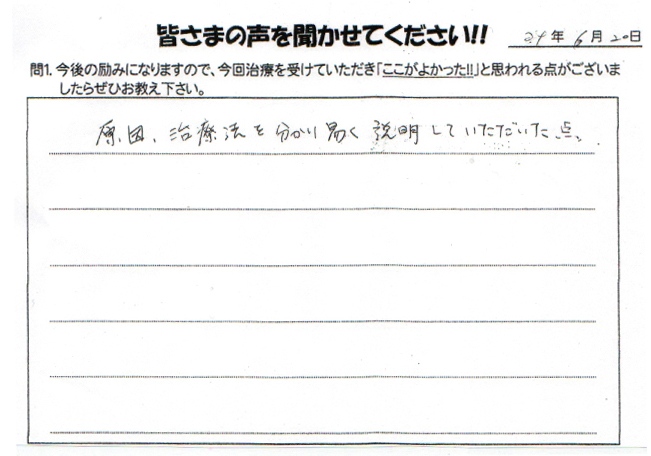 皆さまの声を聞かせてください!! 24年6月20日
問1. 今後の励みになりますので、今回治療を受けていただき「ここがよかった!!」と思われる点がございま
したらぜひお教え下さい。
原因、治療法を分かり易く説明していただいた点。